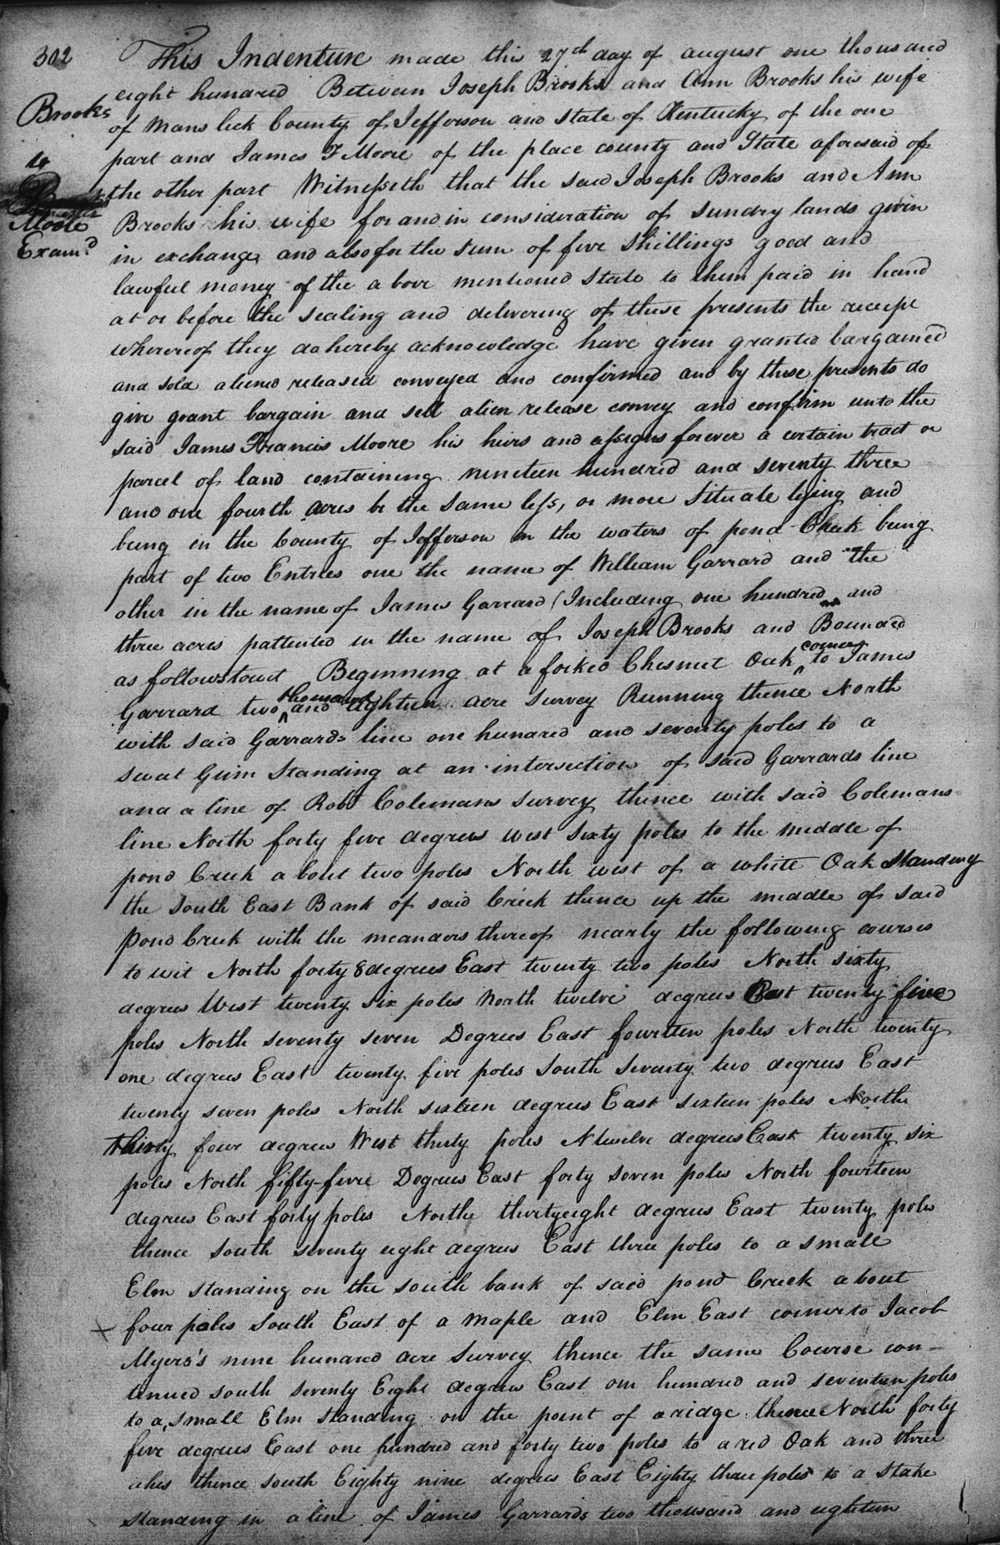 302
Brooks
4
Moore
Exam.d
This Indenture made this 27th day of august one thousand
eight hundred Between Joseph Brooks and Ann Brooks his wife
of Mans lick County of Jefferson and State of Kentucky of the one
part and James F Moore of the place county and State aforesaid of
the other part Witnesseth that the said Joseph Brooks and Ann
Brooks his wife for and in consideration of sundry lands given
in exchange and also for the sum of five shillings good and
lawful money of the above mentioned State to them paid in hand
at or before the sealing and delivering of these presents the receipt
whereof they do hereby acknowledge have given granted bargained
and sold aliened released conveyed and confirmed and by these presents do
give grant bargain and sell alien release convey and confirm unto the
said James Francis Moore his heirs and assigns forever a certain tract or
parcel of land containing nineteen hundred and seventy three
and one fourth acres be the same less, or more situate lying and
being in the County of Jefferson on the waters of pond Creek being
part of two Entries one the name of William Garrard and the
other in the name of James Garrard (Including one hundred and
three acres pattented in the name of Joseph Brooks and Bounded
as followstowit Beginning at a forked Chesnut Oak corner to James
Garrard two thousand and eighteen acre survey Running thence North
with said Garrards line one hundred and seventy poles to a
sweat Gum standing at an intersection of said Garrards line
and a line of Robt Colemans survey thence with said Colemans
line North forty five degrees west sixty poles to the middle of
pond Creek about two poles North west of a white Oak standing
the South East Bank of said Creek thence up the middle of said
pond Creek with the meanders thereof nearly the following courses
to wit North forty 8 degrees East twenty two poles North sixty
degrees West twenty six poles North twelve degrees East twenty five
poles North seventy seven Degrees East fourteen poles North twenty
one degrees East twenty five poles South seventy two degrees East
twenty seven poles North sixteen degrees East sixteen poles North
thirty four degrees West thirty poles N twelve degrees East twenty six
poles North fifty-five Degrees East forty seven poles North fourteen
degrees East forty poles North thirtyeight degrees East twenty poles
thence South seventy eight degrees East three poles to a small
Elm standing on the south bank of said pond Creek about
four poles South East of a maple and Elm East corner to Jacob
Myers's nine hundred acre survey thence the same Course con-
tinued south seventy Eight degrees East one hundred and seventeen poles
to a small Elm standing on the point of a ridge thence North forty
five degrees East one hundred and forty two poles to a red Oak and three
ashes thence south Eighty nine degrees East Eighty three poles to a stake
standing in a line of James Garrards two thousand and eighteen